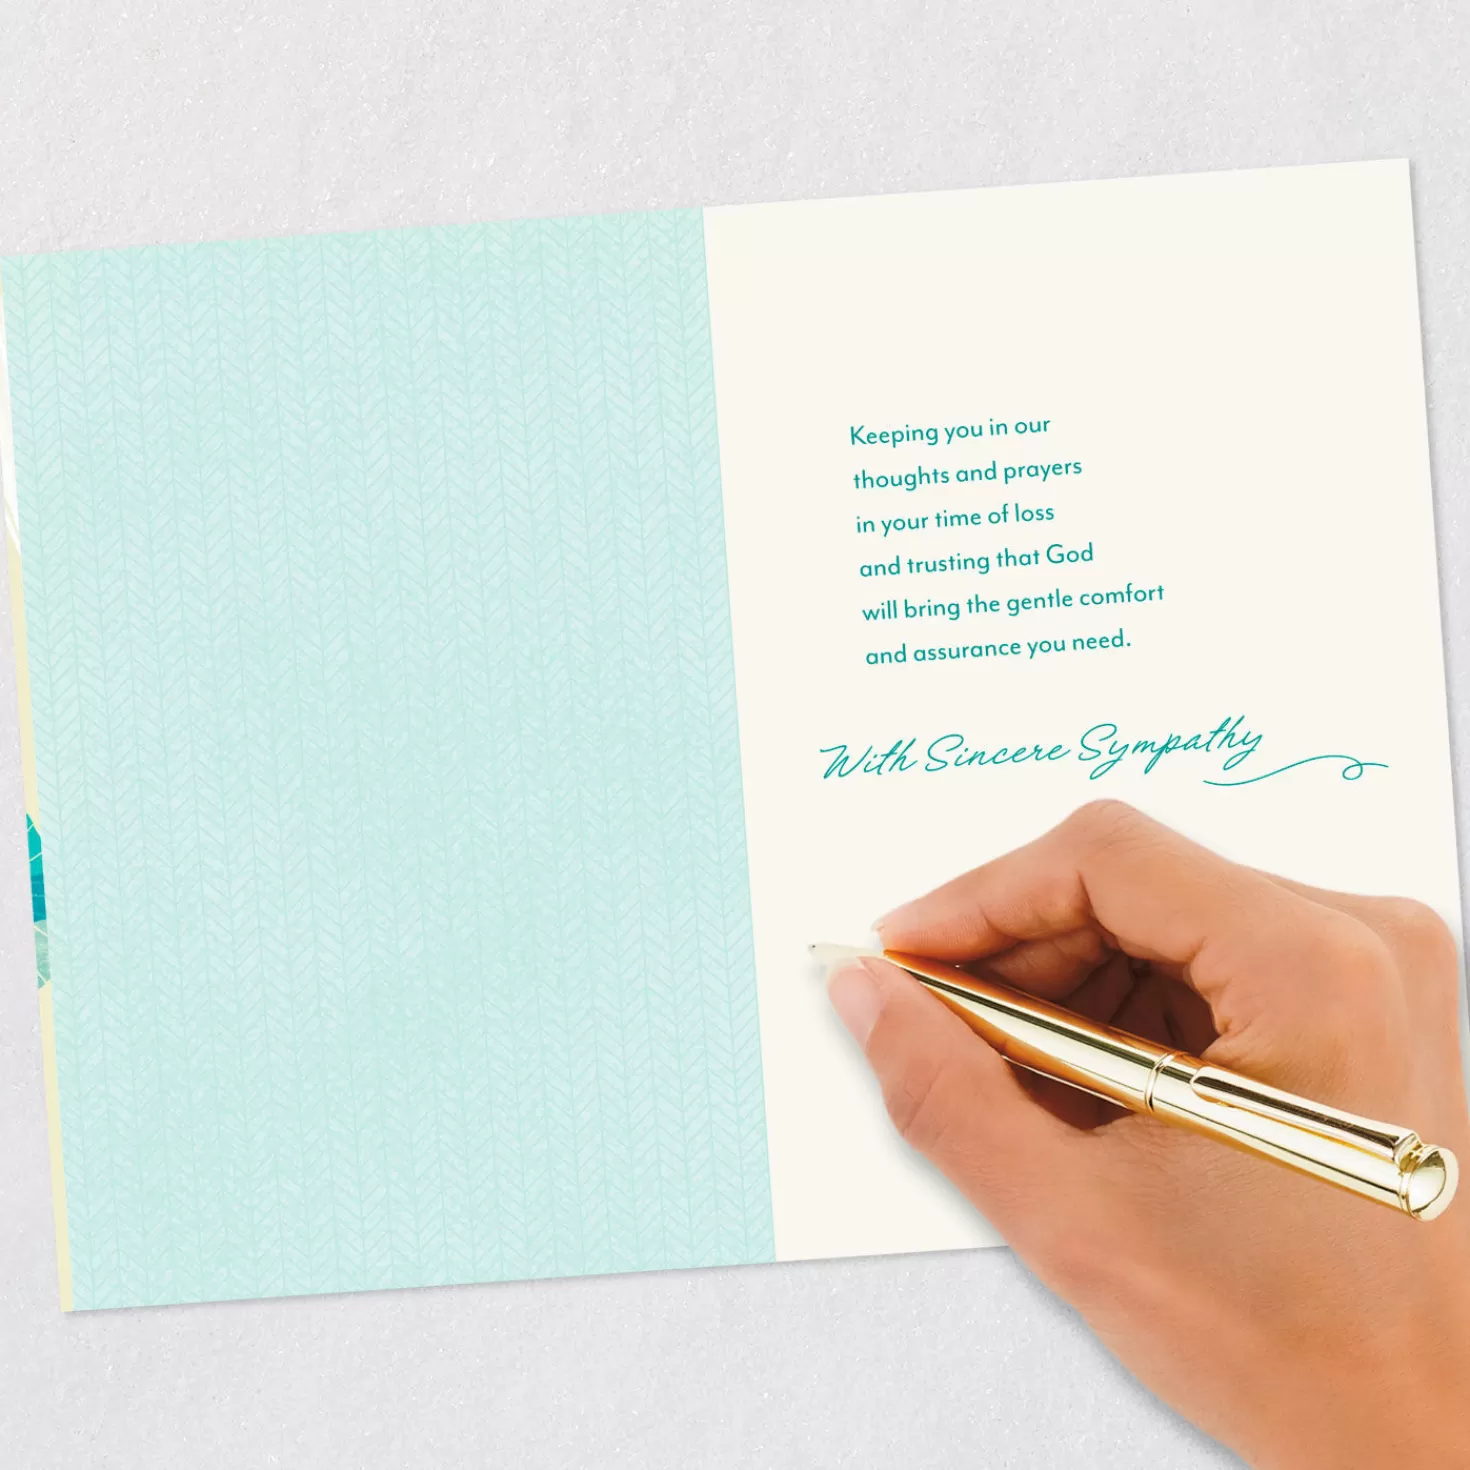 Keeping you in our
thoughts and prayers
in your time of loss
and trusting that God
will bring the gentle comfort
and assurance you need.
With Sincere Sympathy